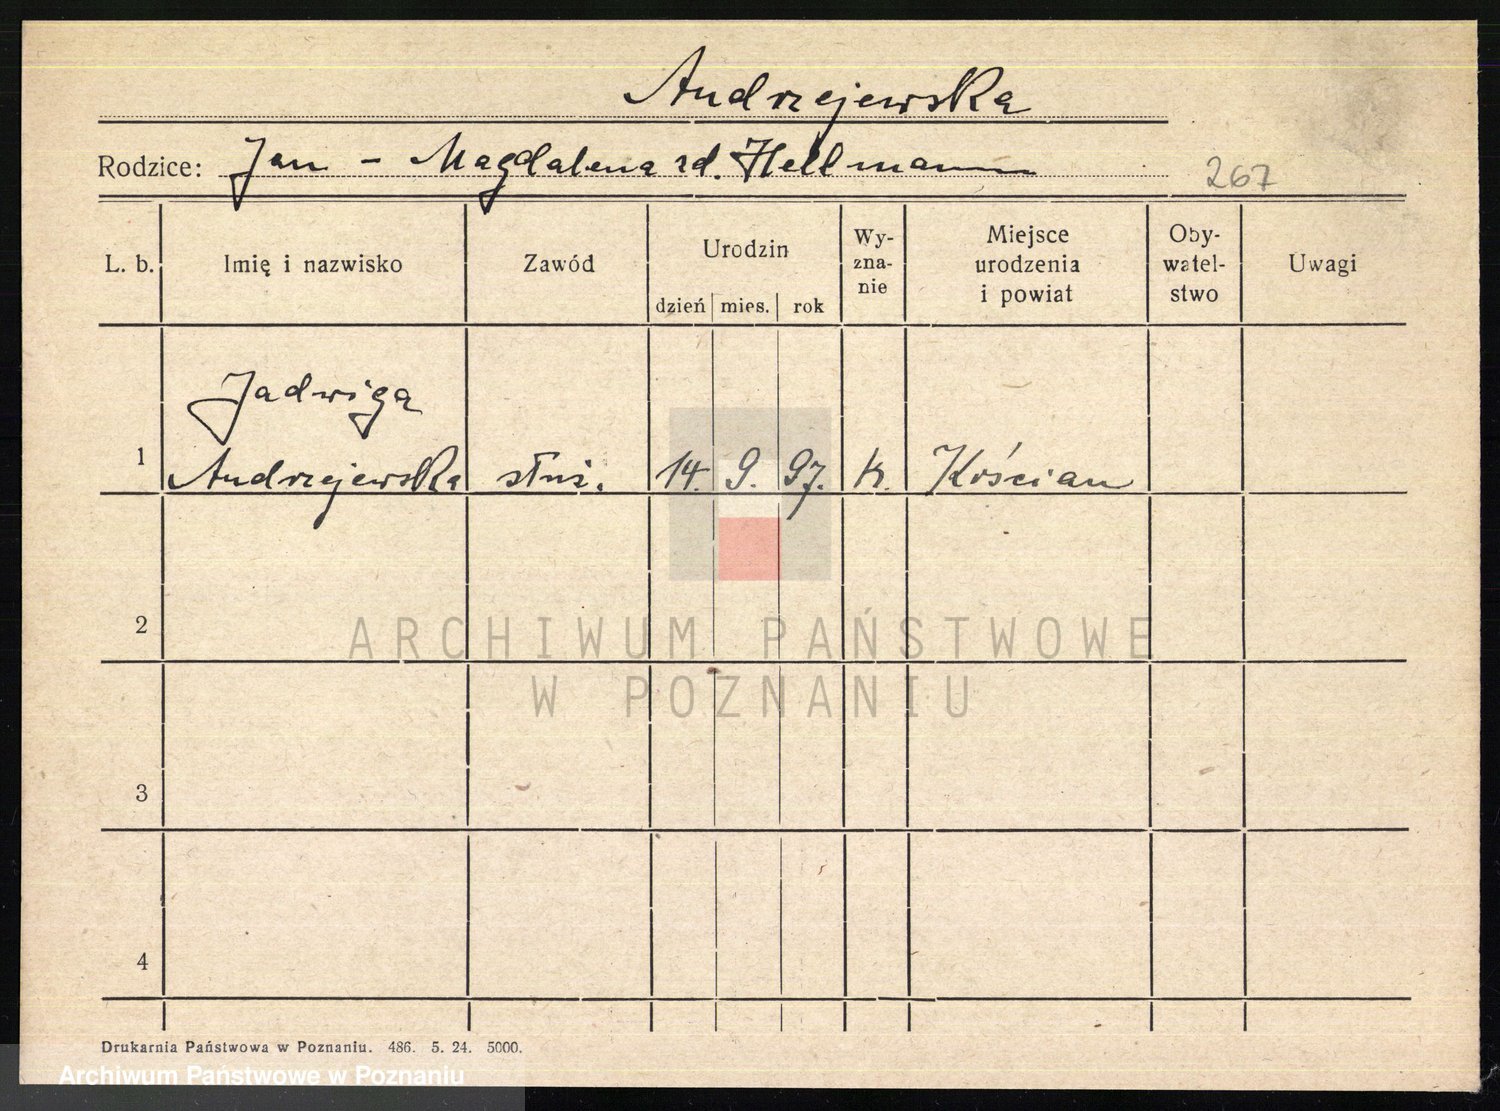 Andrzejewska
Rodzice: Jan - Magdalena rd. Hellmann
267
L. b.
Imię i nazwisko
Zawód
Urodzin
dzień mies. rok
Wy-
zna-
nie
Miejsce
urodzenia
i powiat
Oby-
watel-
stwo
Uwagi
Jadwiga
1 Andrzejewska służ. 14. 9. 97. k. Kościan
2
ARCHIWUM PAŃSTWOWE
W POZNANIU
3
4
Drukarnia Państwowa w Poznaniu. 486. 5. 24. 5000.
Archiwum Państwowe w Poznaniu